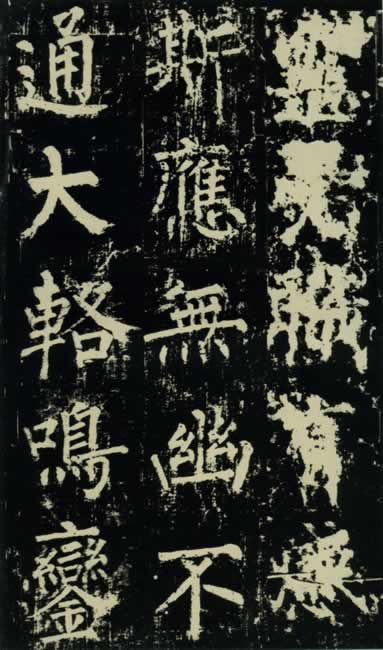 靈職有感
斯應無幽不
通大輅鳴鑾